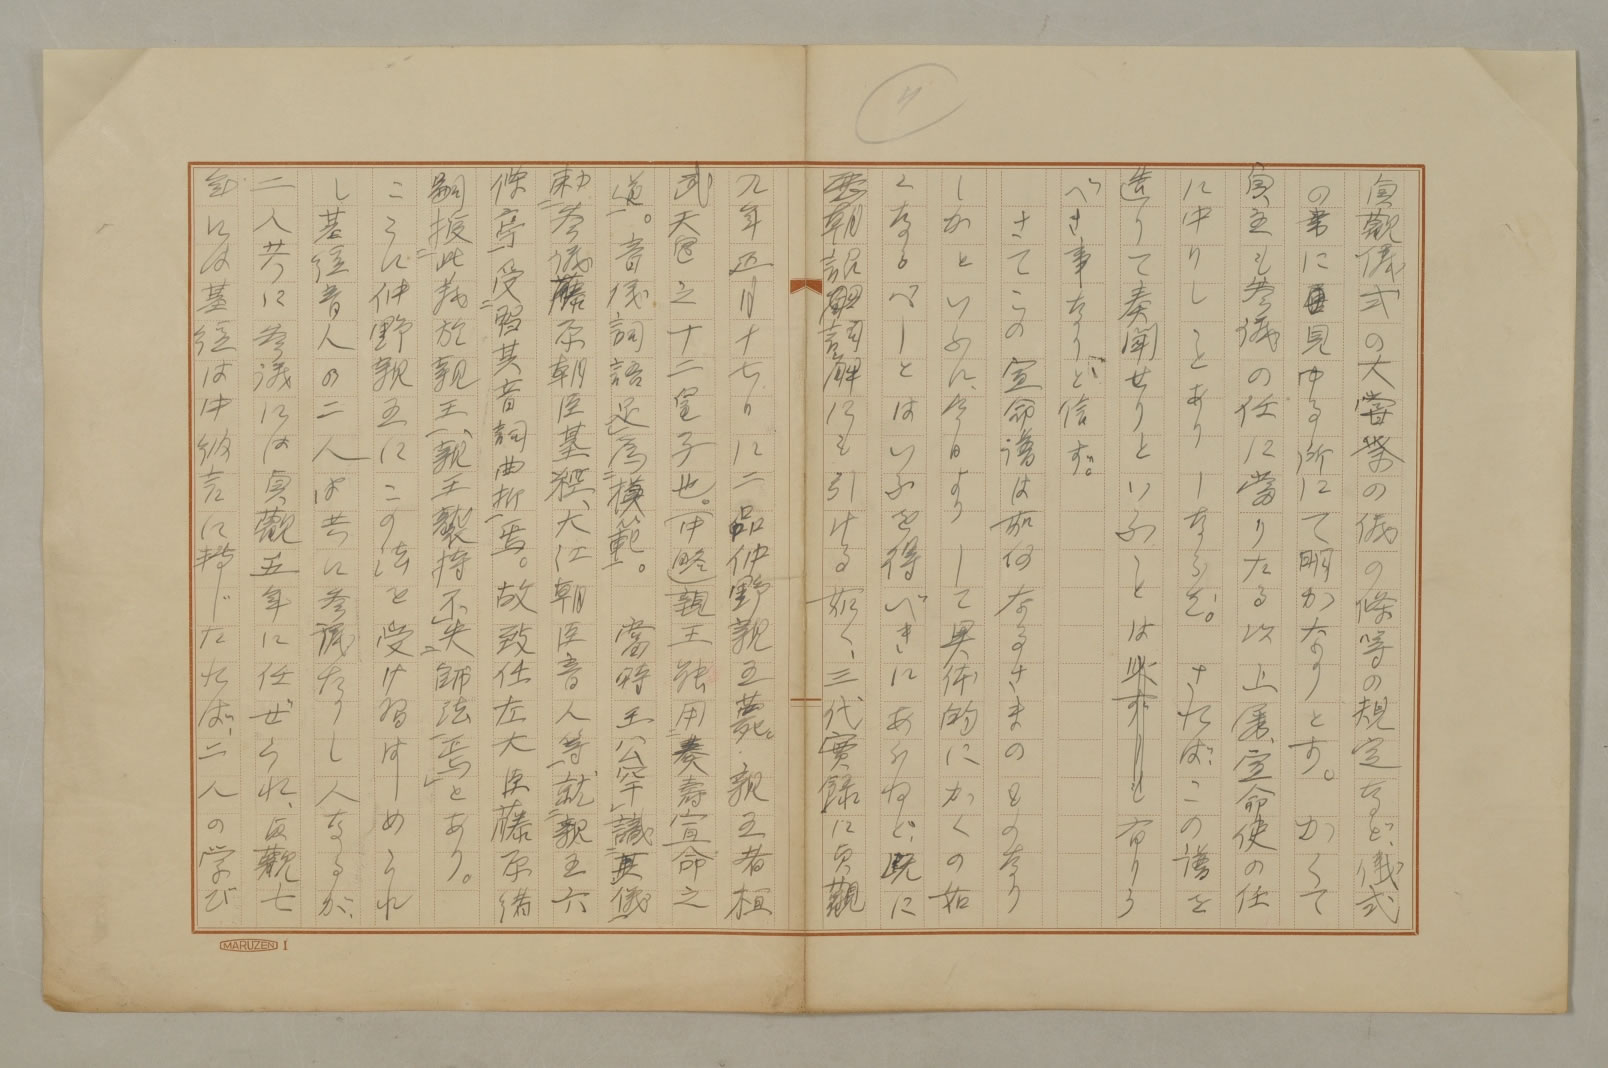 貞觀儀式の大嘗祭の儀の條等の規定など、儀式
の書に見ゆる所にて明かなりとす。かくて
眞主も参議の任に當りたる以上屡宣命使の任
にゆりしことありしならむ。されば、この譜を
造りて奏聞せりといふことは 有りう
べき事なりと信ず。
さてこの宣命譜は如何なるさまのものなり
しかといふに、今日よりして具体的にかくの如
くなるべしとはいふを得べきにあらねど、既に
歴朝詔詞解にも引ける如く、三代實録に貞觀
九年正月十七日に二品仲野親王薨。親王者桓
武天皇之十二皇子也。(中略)親王能用奏壽宣命之
道。音儀詞語足爲模範。當時王公罕識其儀
勅参議藤原朝臣基經、大江朝臣音人等就親王六
條亭受習其音詞曲折焉。故致仕左大臣藤原緒
嗣授此義於親王、親王襲持不失師法焉」とあり。
こゝに仲野親王にこの法を受け習はしめられ
し基經音人の二人は共に参議たりし人なるが、
二人共に参議には貞觀五年に任ぜられ、貞觀七
年には基經は中納言に轉じたれば、二人の学び
MARUZEN 1